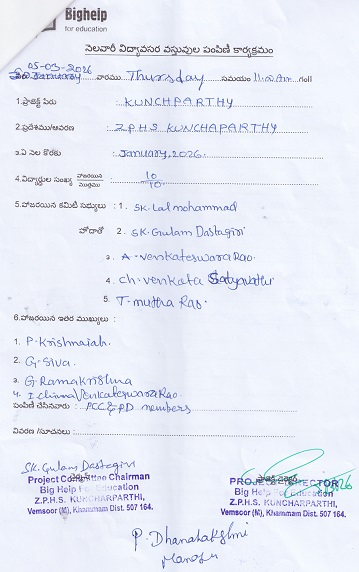 Bighelp
for education
నెలవారీ విద్యావసర వస్తువుల పంపిణి కార్యక్రమం
05-03-2026
వారము Thursday సమయం 11.00 Am. గంll
1.ప్రాజెక్ట్ పేరు : KUNCHPARTHY
2.ప్రదేశము/ఆవరణ : Z.P.H.S KUNCHAPARTHY
3.ఏ నెల కొరకు : January, 2026.
4.విద్యార్థుల సంఖ్య హాజరయిన/మొత్తము : 10/10
5.హాజరయిన కమిటి సభ్యులు : 1. SK. Lal mohammad
హోదాతో 2. SK. Gulam Dastagiri
3. A. Venkateswara Rao.
4. Ch. Venkata Satyavathi
5. T. muttha Rao.
6.హాజరయిన ఇతర ముఖ్యులు :
1. P. Krishnaiah.
2. G. Siva.
3. G. Ramakrishna
4. I. chinna Venkateswara Rao.
పంపిణి చేసినవారు : PCC & PD members
వివరణ /సూచనలు :
SK. Gulam Dastagiri
Project Committee Chairman
Big Help For Education
Z.P.H.S. KUNCHARPARTHI,
Vemsoor (M), Khammam Dist. 507 164.
PROJECT DIRECTOR
Big Help For Education
Z.P.H.S. KUNCHARPARTHI,
Vemsoor (M), Khammam Dist. 507 164.
P. Dhanalakshmi